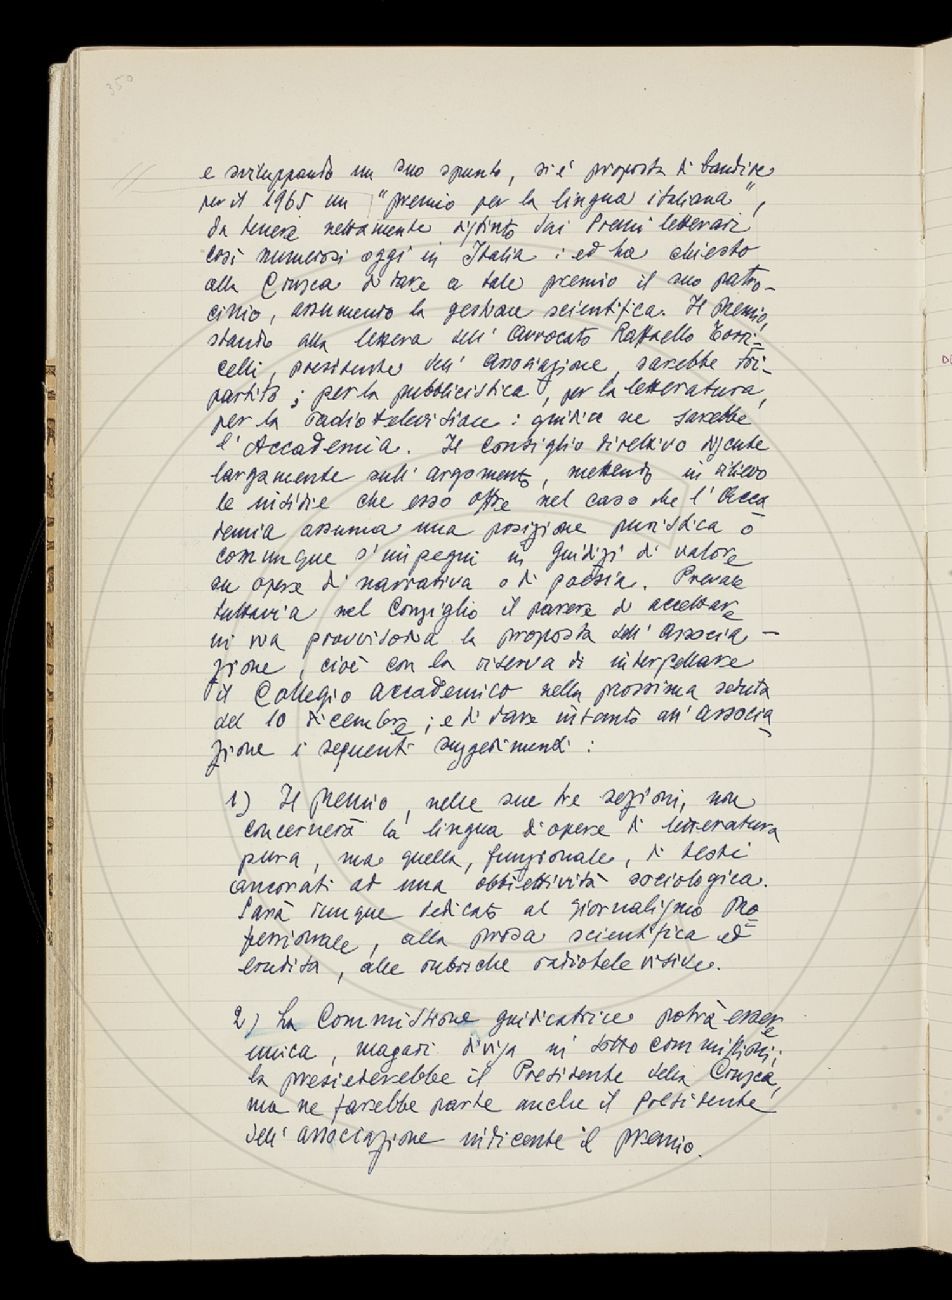 350
e sviluppando un suo spunto, si è proposta di bandire
per il 1965 un "premio per la lingua italiana",
da tenere nettamente distinto dai Premi letterari
così numerosi oggi in Italia : ed ha chiesto
alla Crusca di dare a tale premio il suo patro-
cinio, assumendo la gestione scientifica. Il Premio,
stando alla lettera dell'Avvocato Raffaello Torri=
celli, presidente dell'Associazione, sarebbe tri-
partito : per la pubblicistica, per la letteratura,
per la radiotelevisione : giudice ne sarebbe
l'Accademia. Il Consiglio direttivo discute
largamente sull'argomento, mettendo in rilievo
le insidie che esso offre nel caso che l'Acca
demia assuma una posizione puristica o
comunque s'impegni in giudizi di valore
su opere di narrativa o di poesia. Prevale
tuttavia nel Consiglio il parere di accettare
in via provvisoria la proposta dell'Associa-
zione, cioè con la riserva di interpellare
il Collegio Accademico nella prossima seduta
del 10 dicembre ; e di dare intanto all'Associa
zione i seguenti suggerimenti :
1) Il Premio, nelle sue tre sezioni, non
concernerà la lingua di opere di letteratura
pura, ma quella, funzionale, di testi
ancorati ad una obbiettività sociologica.
Sarà dunque dedicato al giornalismo pro=
fessionale, alla prosa scientifica ed
erudita, alle rubriche radiotelevisive.
2) La Commissione giudicatrice potrà essere
unica, magari divisa in sottocommissioni;
la presiederebbe il Presidente della Crusca,
ma ne farebbe parte anche il Presidente
dell'Associazione indicente il premio.